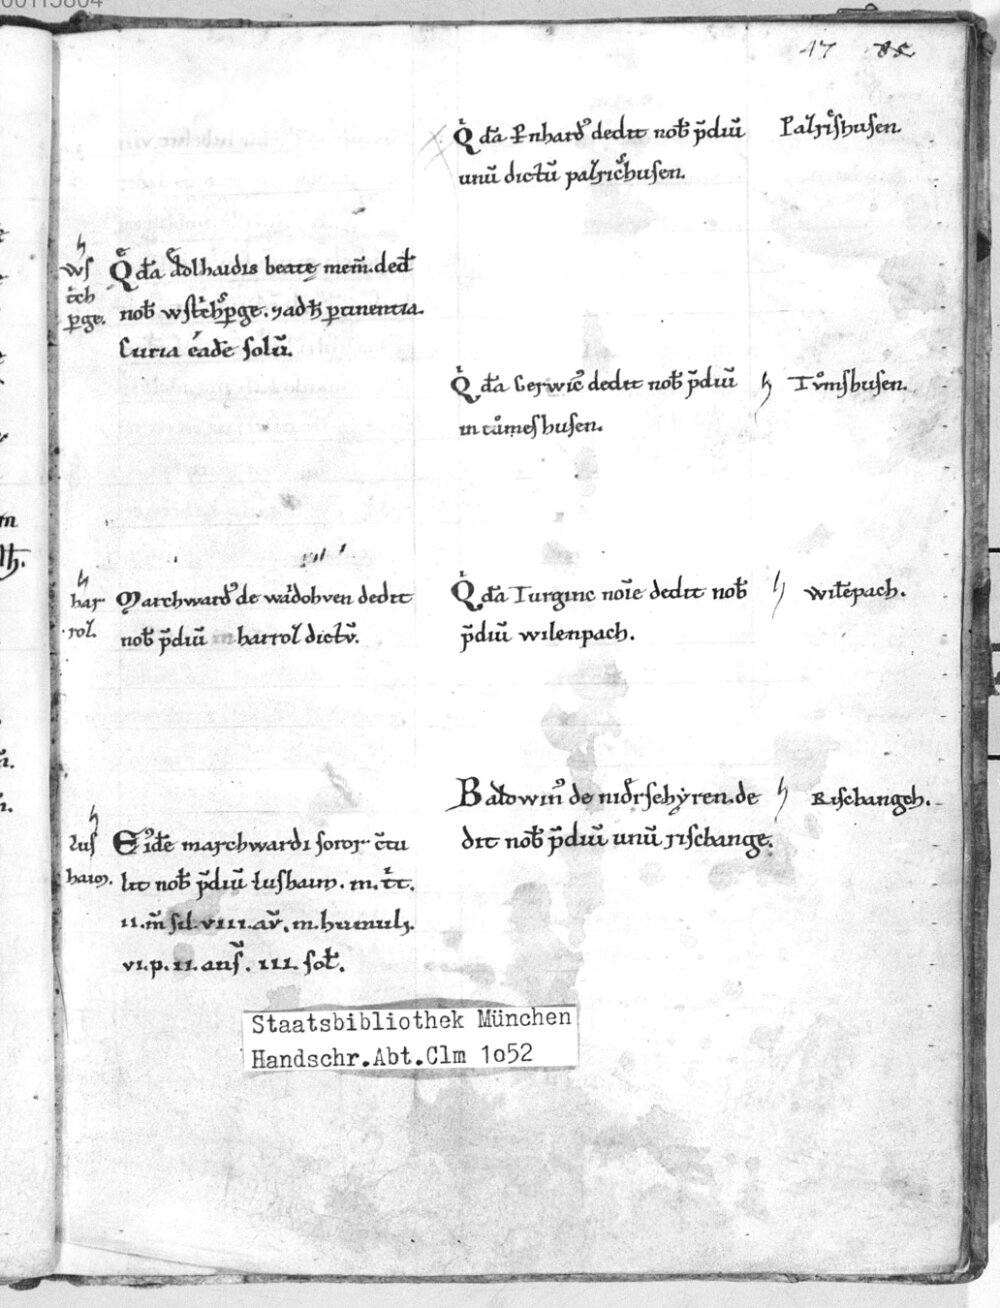 47
Q̇dā Ꝑnhard᾽ dedit nob̄ p̄diū
unū dictū palricͤhusen.
Palriͤshusen
wſ
tͥch
ꝑge.
Qͤdā Aͤdlhaidis beate mem̄. ded̄
nob̄ wſtͥchꝑge. ⁊ adh̄ ꝑtinentia.
Curia éadē solū.
Q̇dā Gerwic᾽ dedit nob̄ p̄diū
in tůmeshusen.
Tůmshusen.
har
rol.
Marchward᾽ de wald́ohven dedit
nob̄ p̄diū in harrol dictū.
Q̇dā Turginc noīe dedit nob̄
p̄diū wilenpach.
wilēpach.
Baldwin᾽ de nid᾽rschẏren. de
dit nob̄ p̄diū unū rischange.
Rischangch.
lus
haim.
Eid᾽dē marchwardi soror cͣtu
lit nob̄ p̄diū lushaim. m. tͥt.
ii. m̄ sil. viii. av̄. m. humuli.
vi. p. ii. ans̄. iii. sol̄.
Staatsbibliothek München
Handschr.Abt.Clm 1o52